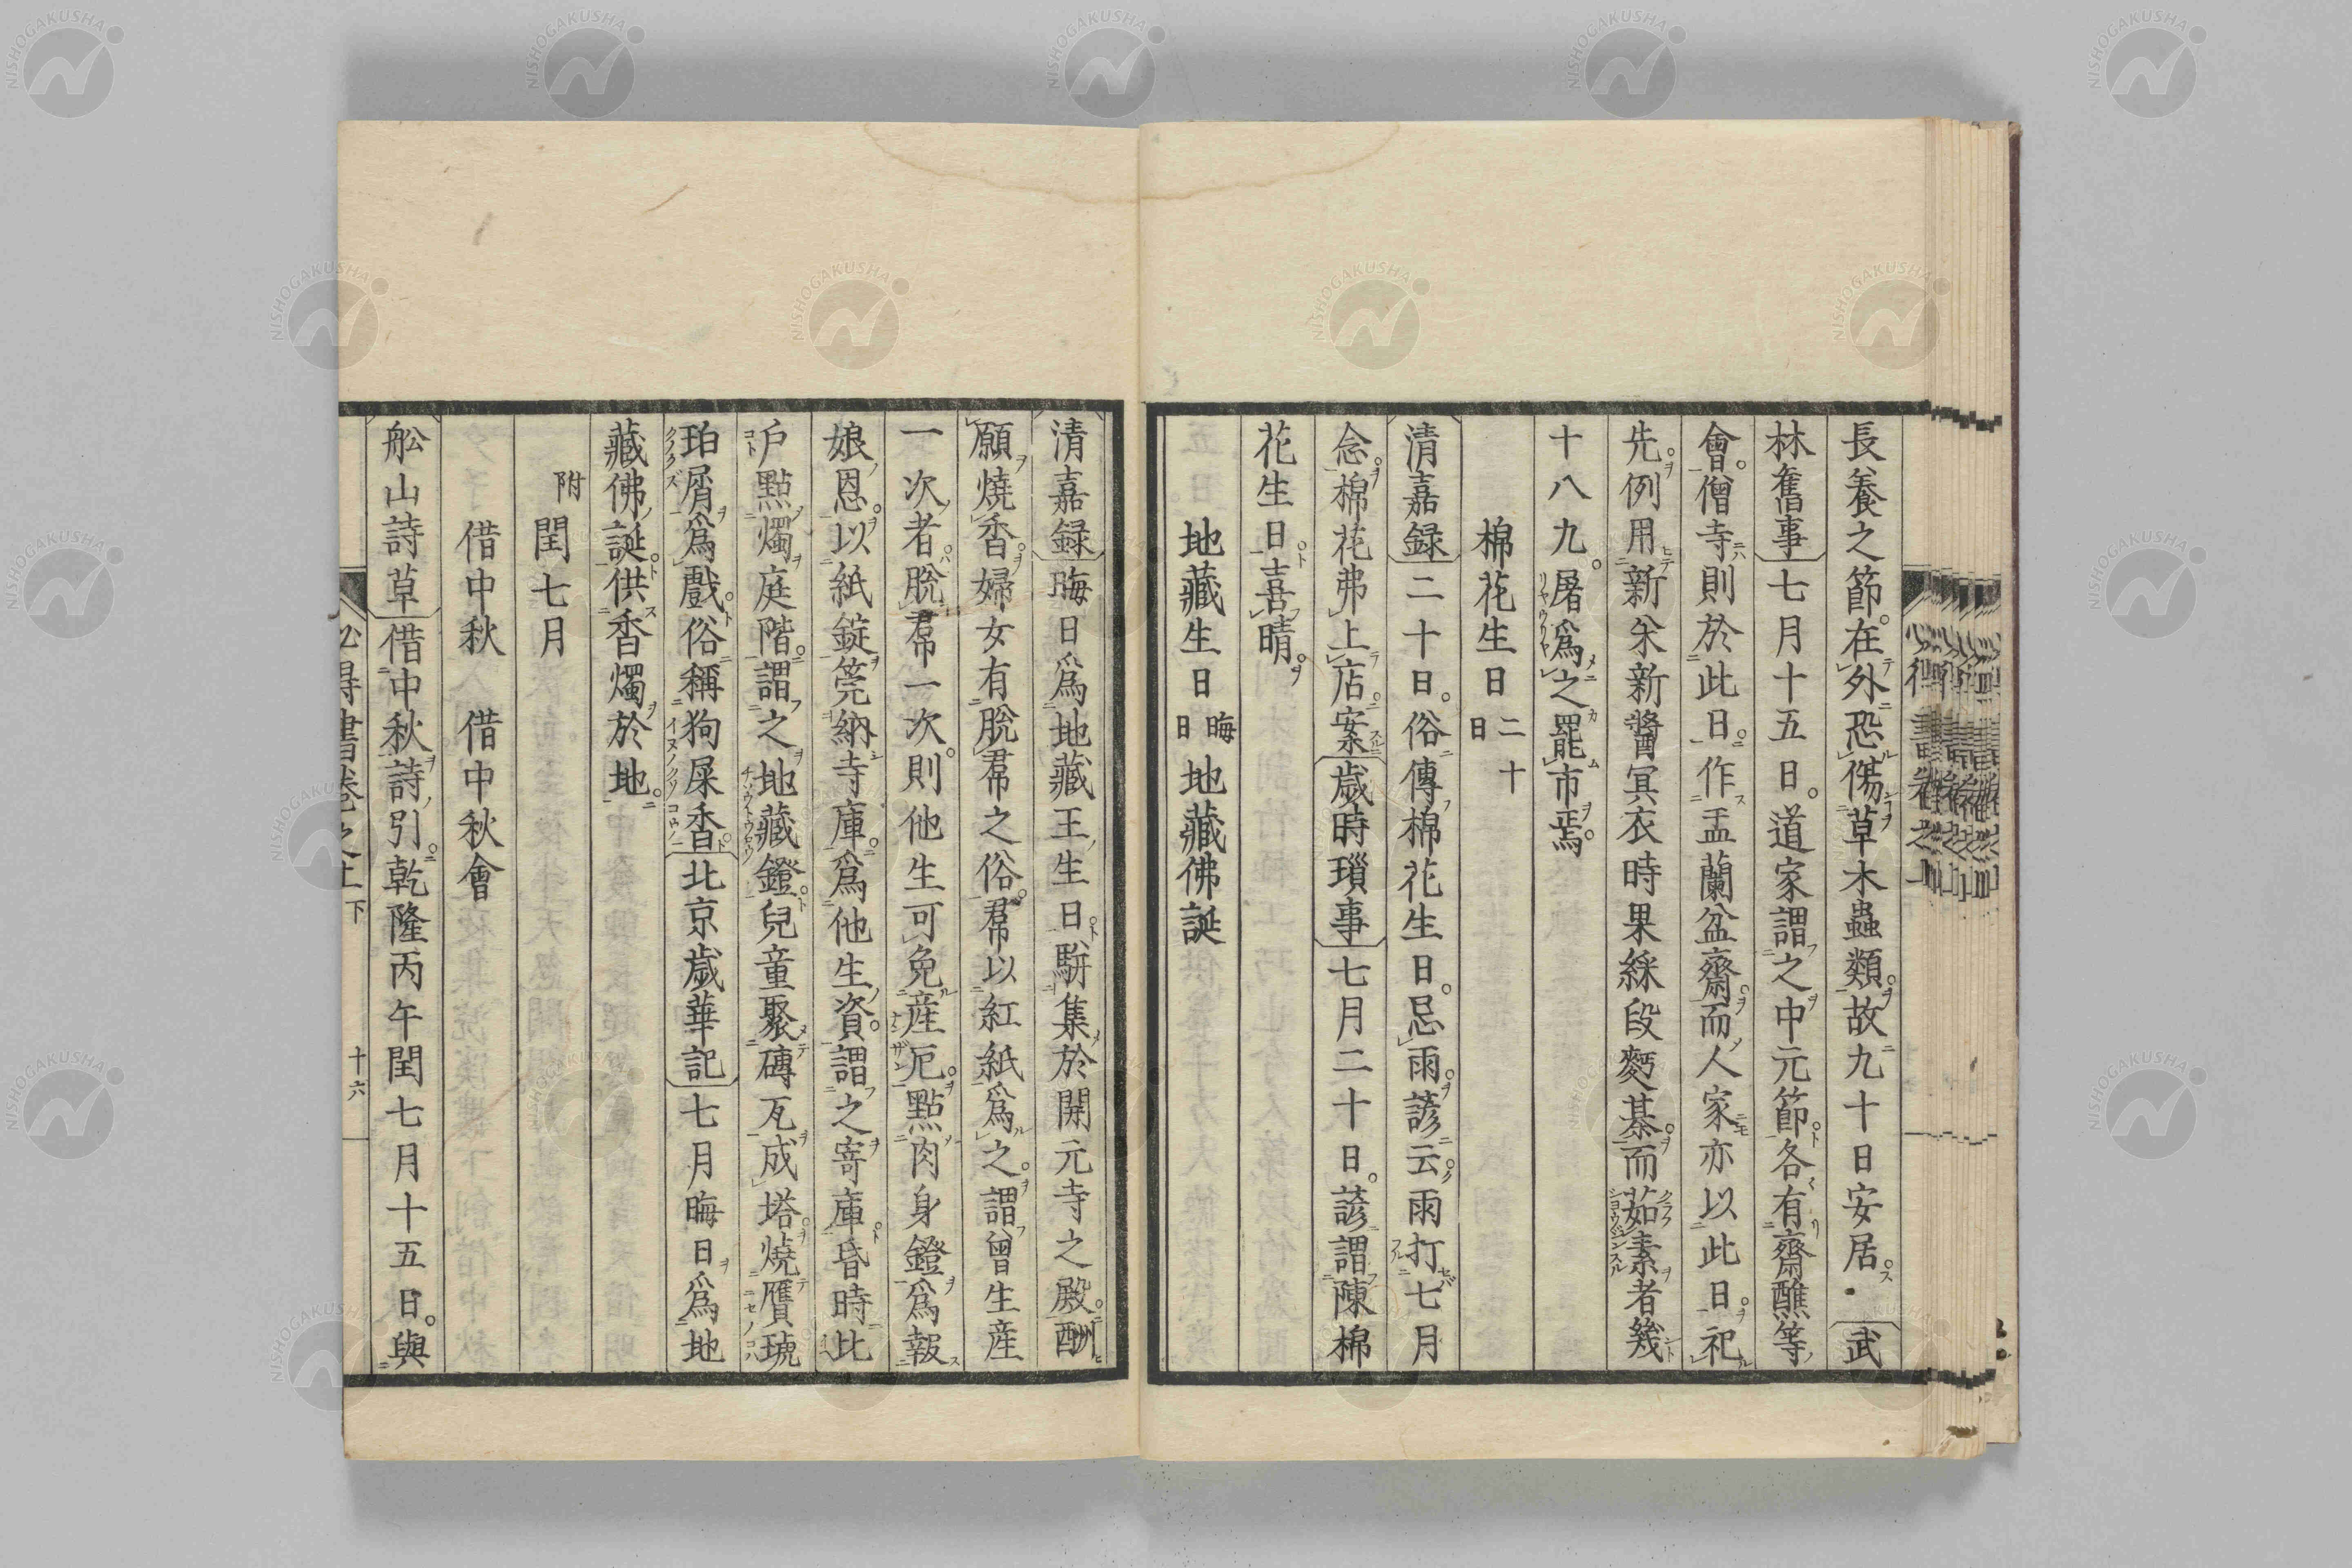 長養之節在外恐傷草木蟲類故九十日安居武
林舊事七月十五日道家謂之中元節各有齋醮等
會僧寺則於此日作盂蘭盆齋而人家亦以此日祀
先例用新米新醬冥衣時果綵段麪棊而茹素者幾
十八九屠爲之罷市焉
棉花生日二十日
清嘉録二十日俗傳棉花生日忌雨諺云雨打七月
念棉花弗上店案歲時瑣事七月二十日諺謂陳棉
花生日喜晴
地藏生日晦日地藏佛誕
清嘉録晦日爲地藏王生日駢集於開元寺之殿酬
願燒香婦女有脫裙之俗裙以紅紙爲之謂曾生產
一次者脫裙一次則他生可免產厄點肉身鐙爲報
娘恩以紙錠筦納寺庫爲他生資謂之寄庫昏時比
戶點燭庭階謂之地藏鐙兒童聚磚瓦成塔燒贗琥
珀屑爲戲俗稱狗屎香北京歲華記七月晦日爲地
藏佛誕供香燭於地
附閏七月
借中秋 借中秋會
船山詩草借中秋詩引乾隆丙午閏七月十五日與
下 十六
NISHOGAKUSHA